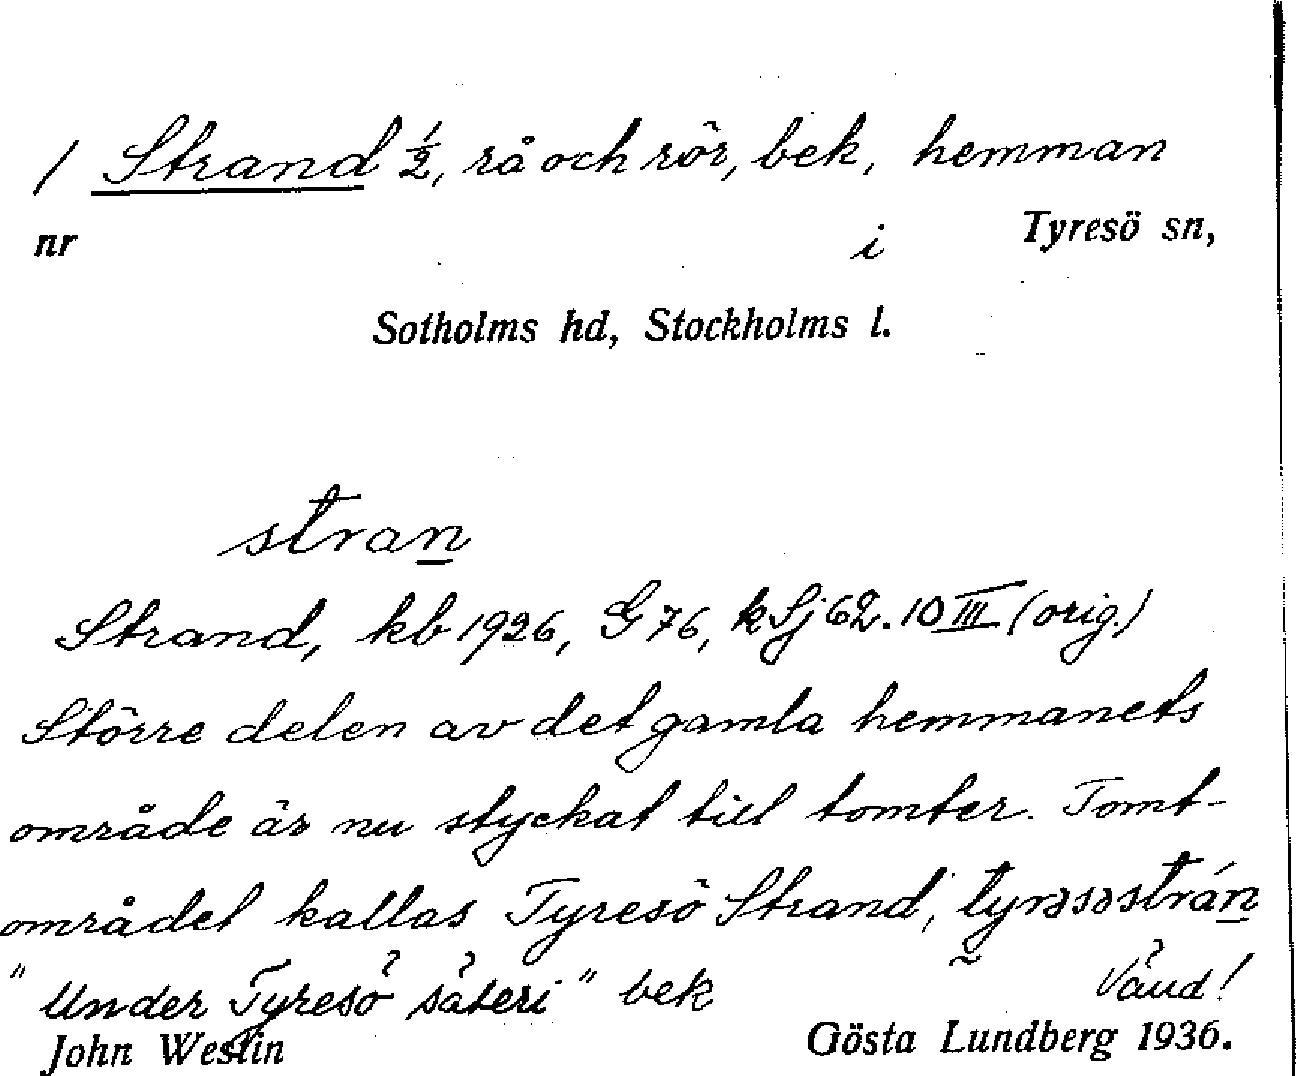 / Strand ½, rå och rör, bek, hemman
nr i Tyresö sn,
Sotholms hd, Stockholms l.
stran
Strand, kb 1926, G 76, k Sj 62.10 III (orig.)
Större delen av det gamla hemmanets
område är nu styckat till tomter. Tomt-
området kallas Tyresö Strand, tyrəsəstrán
"Under Tyresö säteri" bek Vänd!
John Westin Gösta Lundberg 1936.